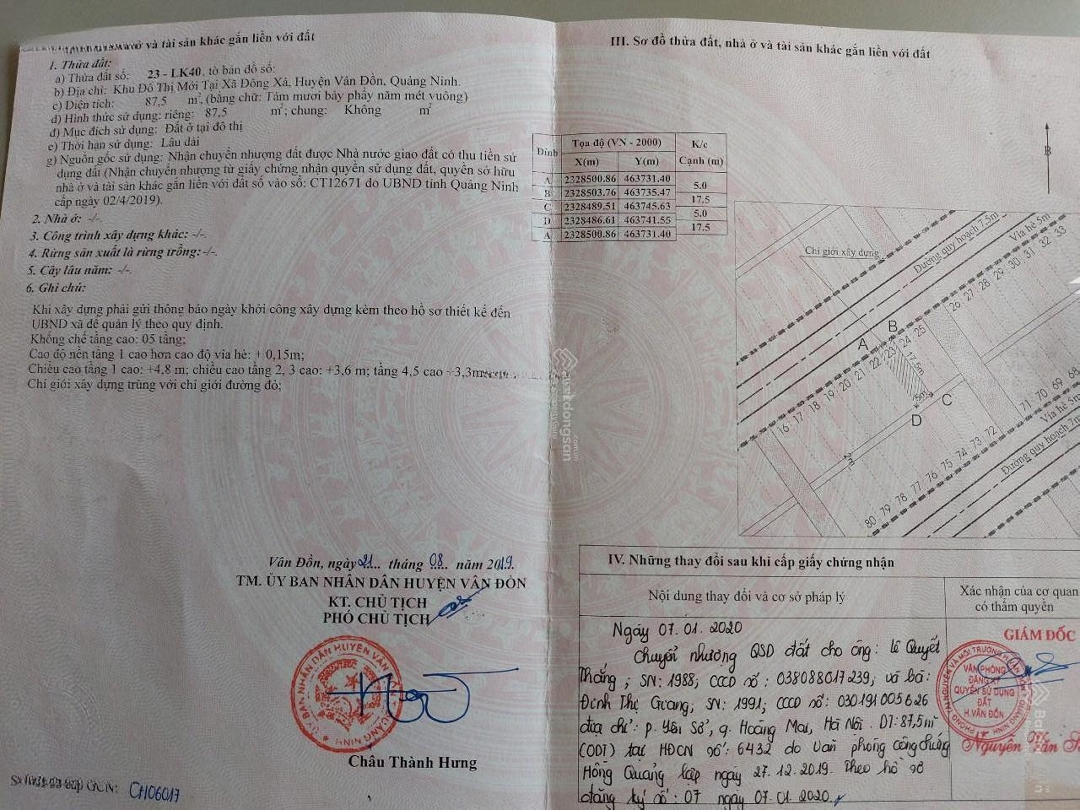 ở và tài sản khác gắn liền với đất
1. Thửa đất:
a) Thửa đất số: 23 - LK40, tờ bản đồ số:
b) Địa chỉ: Khu Đô Thị Mới Tại Xã Đông Xá, Huyện Vân Đồn, Quảng Ninh.
c) Diện tích: 87,5 m², (bằng chữ: Tám mươi bảy phẩy năm mét vuông)
d) Hình thức sử dụng: riêng: 87,5 m²; chung: Không m²
đ) Mục đích sử dụng: Đất ở tại đô thị
e) Thời hạn sử dụng: Lâu dài
g) Nguồn gốc sử dụng: Nhận chuyển nhượng đất được Nhà nước giao đất có thu tiền sử
dụng đất (Nhận chuyển nhượng từ giấy chứng nhận quyền sử dụng đất, quyền sở hữu
nhà ở và tài sản khác gắn liền với đất số vào sổ: CT12671 do UBND tỉnh Quảng Ninh
cấp ngày 02/4/2019).
2. Nhà ở: -/-.
3. Công trình xây dựng khác: -/-.
4. Rừng sản xuất là rừng trồng: -/-.
5. Cây lâu năm: -/-.
6. Ghi chú:
Khi xây dựng phải gửi thông báo ngày khởi công xây dựng kèm theo hồ sơ thiết kế đến
UBND xã để quản lý theo quy định.
Khống chế tầng cao: 05 tầng;
Cao độ nền tầng 1 cao hơn cao độ vỉa hè: + 0,15m;
Chiều cao tầng 1 cao: +4,8 m; chiều cao tầng 2, 3 cao: +3,6 m; tầng 4,5 cao +3,3m
Chỉ giới xây dựng trùng với chỉ giới đường đỏ;
Vân Đồn, ngày 21 tháng 08 năm 2019
TM. ỦY BAN NHÂN DÂN HUYỆN VÂN ĐỒN
KT. CHỦ TỊCH
PHÓ CHỦ TỊCH
Châu Thành Hưng
Số vào sổ cấp GCN: CH06017
III. Sơ đồ thửa đất, nhà ở và tài sản khác gắn liền với đất
Đỉnh Tọa độ (VN - 2000) K/c
X(m) Y(m) Cạnh (m)
A 2328500.86 463731.40
5.0
B 2328503.76 463735.47
17.5
C 2328489.51 463745.63
5.0
D 2328486.61 463741.55
17.5
A 2328500.86 463731.40
B
Chỉ giới xây dựng
Đường quy hoạch 7,5m
Vỉa hè 5m
26 27 28 29 30 31 32 33
A B
16 17 18 19 20 21 22 23 24 25
17.5m
5m
C
D
2m
80 79 78 77 76 75 74 73 72 71 70 69 68
Vỉa hè 5m
Đường quy hoạch 7
IV. Những thay đổi sau khi cấp giấy chứng nhận
Nội dung thay đổi và cơ sở pháp lý
Xác nhận của cơ quan
có thẩm quyền
Ngày 07.01.2020
Chuyển nhượng QSD đất cho ông: Lê Quyết
Thắng, SN: 1988, CCCD số: 038088017239, và bà:
Đinh Thị Giang, SN: 1991, CCCD số: 030191005626
địa chỉ: p. Yên Sở, q. Hoàng Mai, Hà Nội. DT: 87,5m²
(ODT) tại HĐCN số: 6432 do Văn phòng công chứng
Hồng Quang lập ngày 27.12.2019. Theo hồ sơ
đăng ký số: 07 ngày 07.01.2020.
GIÁM ĐỐC
VĂN PHÒNG
ĐĂNG KÝ
QUYỀN SỬ DỤNG
ĐẤT
H.VÂN ĐỒN
Nguyễn Văn